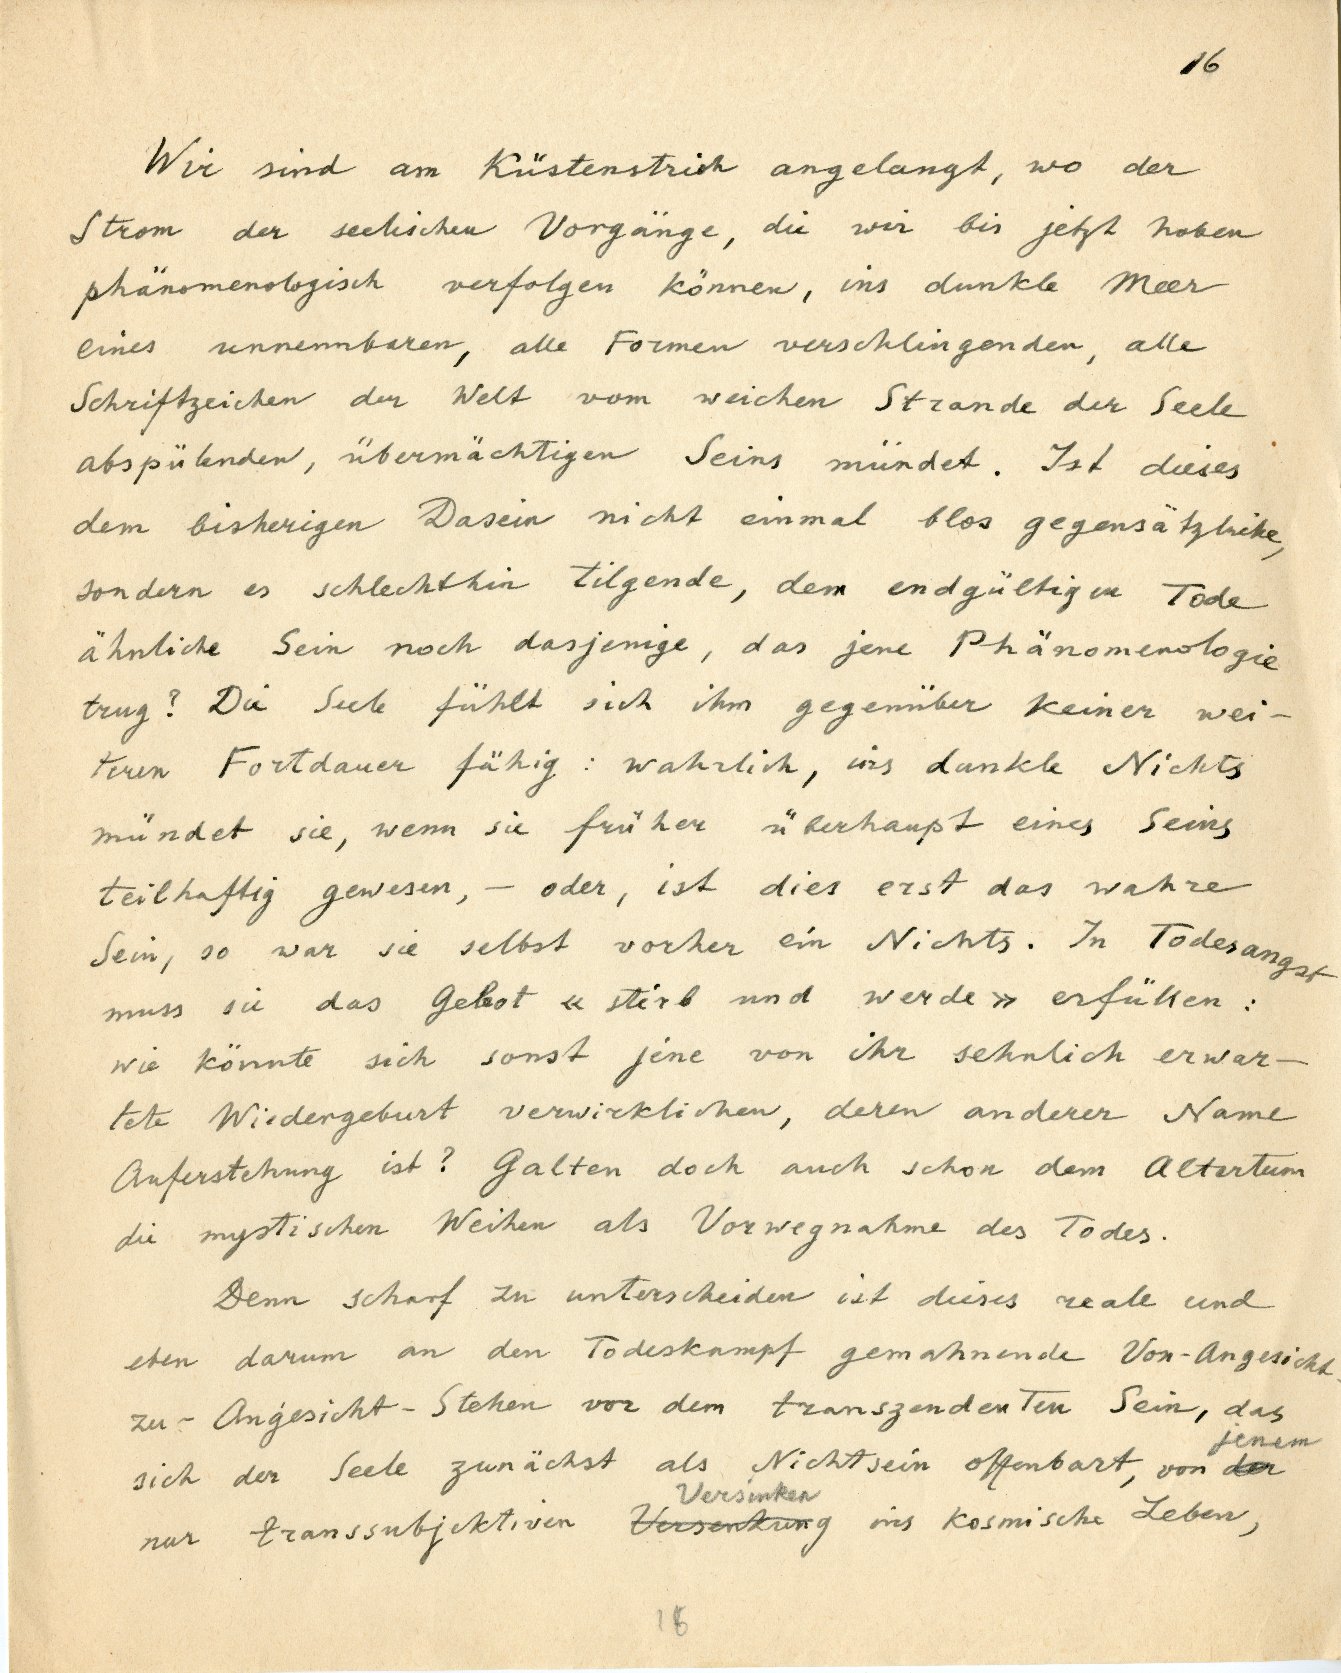 16
Wir sind am Küstenstrich angelangt, wo der
Strom der seelischen Vorgänge, die wir bis jetzt haben
phänomenologisch verfolgen können, ins dunkle Meer
eines unnennbaren, alle Formen verschlingenden, alle
Schriftzeichen der Welt vom weichen Strande der Seele
abspülenden, übermächtigen Seins mündet. Ist dieses
dem bisherigen Dasein nicht einmal blos gegensätzliche,
sondern es schlechthin tilgende, dem endgültigen Tode
ähnliche Sein noch dasjenige, das jene Phänomenologie
trug? Die Seele fühlt sich ihm gegenüber keiner wei-
teren Fortdauer fähig: wahrlich, ins dunkle Nichts
mündet sie, wenn sie früher überhaupt eines Seins
teilhaftig gewesen, – oder, ist dies erst das wahre
Sein, so war sie selbst vorher ein Nichts. In Todesangst
muss sie das Gebot « stirb und werde » erfüllen:
wie könnte sich sonst jene von ihr sehnlich erwar-
tete Wiedergeburt verwirklichen, deren anderer Name
Auferstehung ist? Galten doch auch schon dem Altertum
die mystischen Weihen als Vorwegnahme des Todes.
Denn scharf zu unterscheiden ist dieses reale und
eben darum an den Todeskampf gemahnende Von-Angesicht-
zu-Angesicht-Stehen vor dem transzendenten Sein, das
jenem
sich der Seele zunächst als Nichtsein offenbart, von der
Versinken
nur transsubjektiven Versenkung ins kosmische Leben,
16